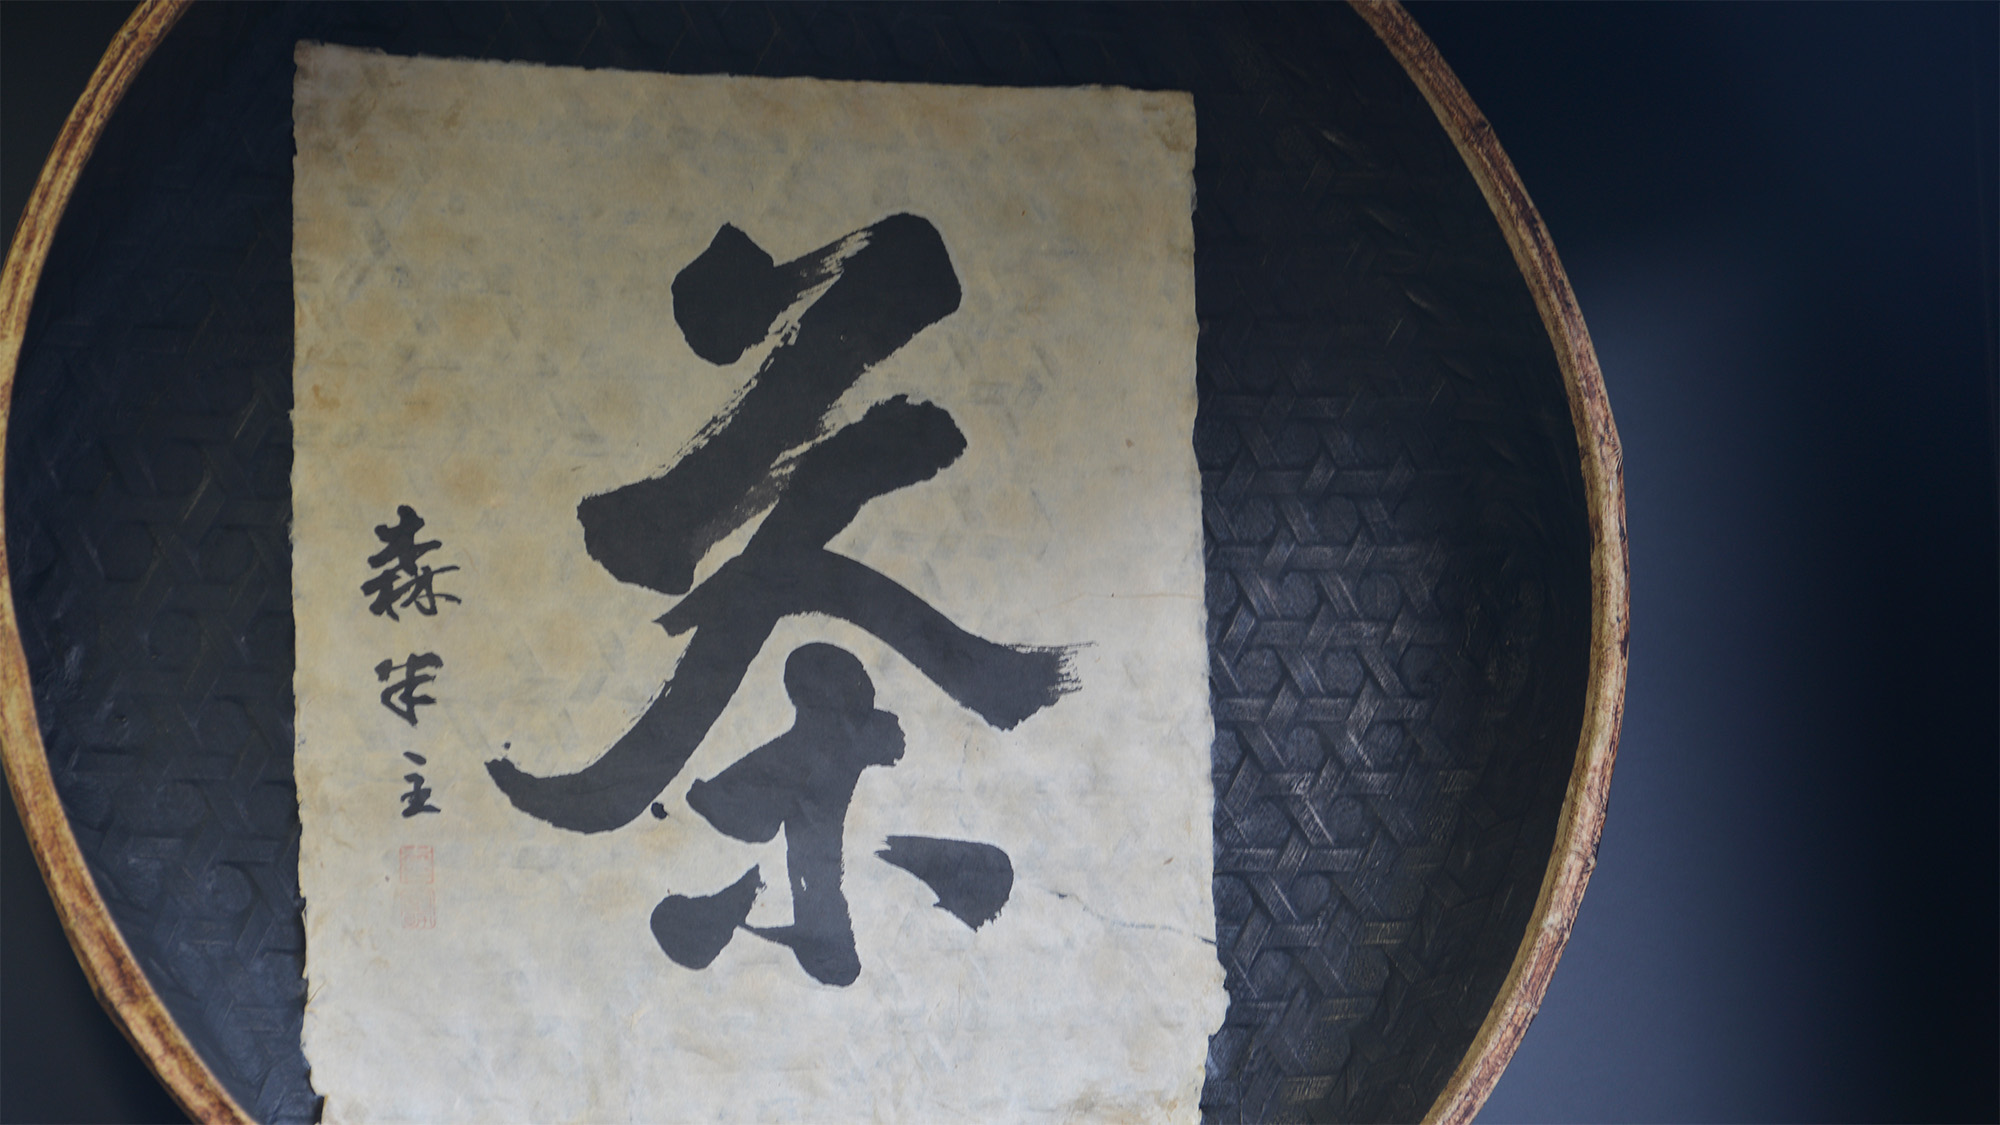 茶
森半主